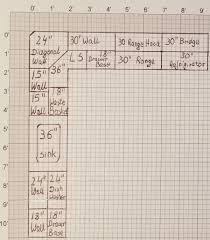 0' 1' 2' 3' 4' 5' 6' 7' 8' 9'
0'
1'
2'
3'
4'
5'
6'
7'
8'
9'
10'
24"
Diagonal
Wall
30" Wall
30 Range Hood
30" Bridge
36"
L S
18"
Drawer
Base
30" Range
30"
Refrigerator
15"
Wall
15"
Wall
18"
Waste
Basket
36"
Sink
24"
Wall
24"
Dish
Washer
18"
Wall
18"
Drawer
Base